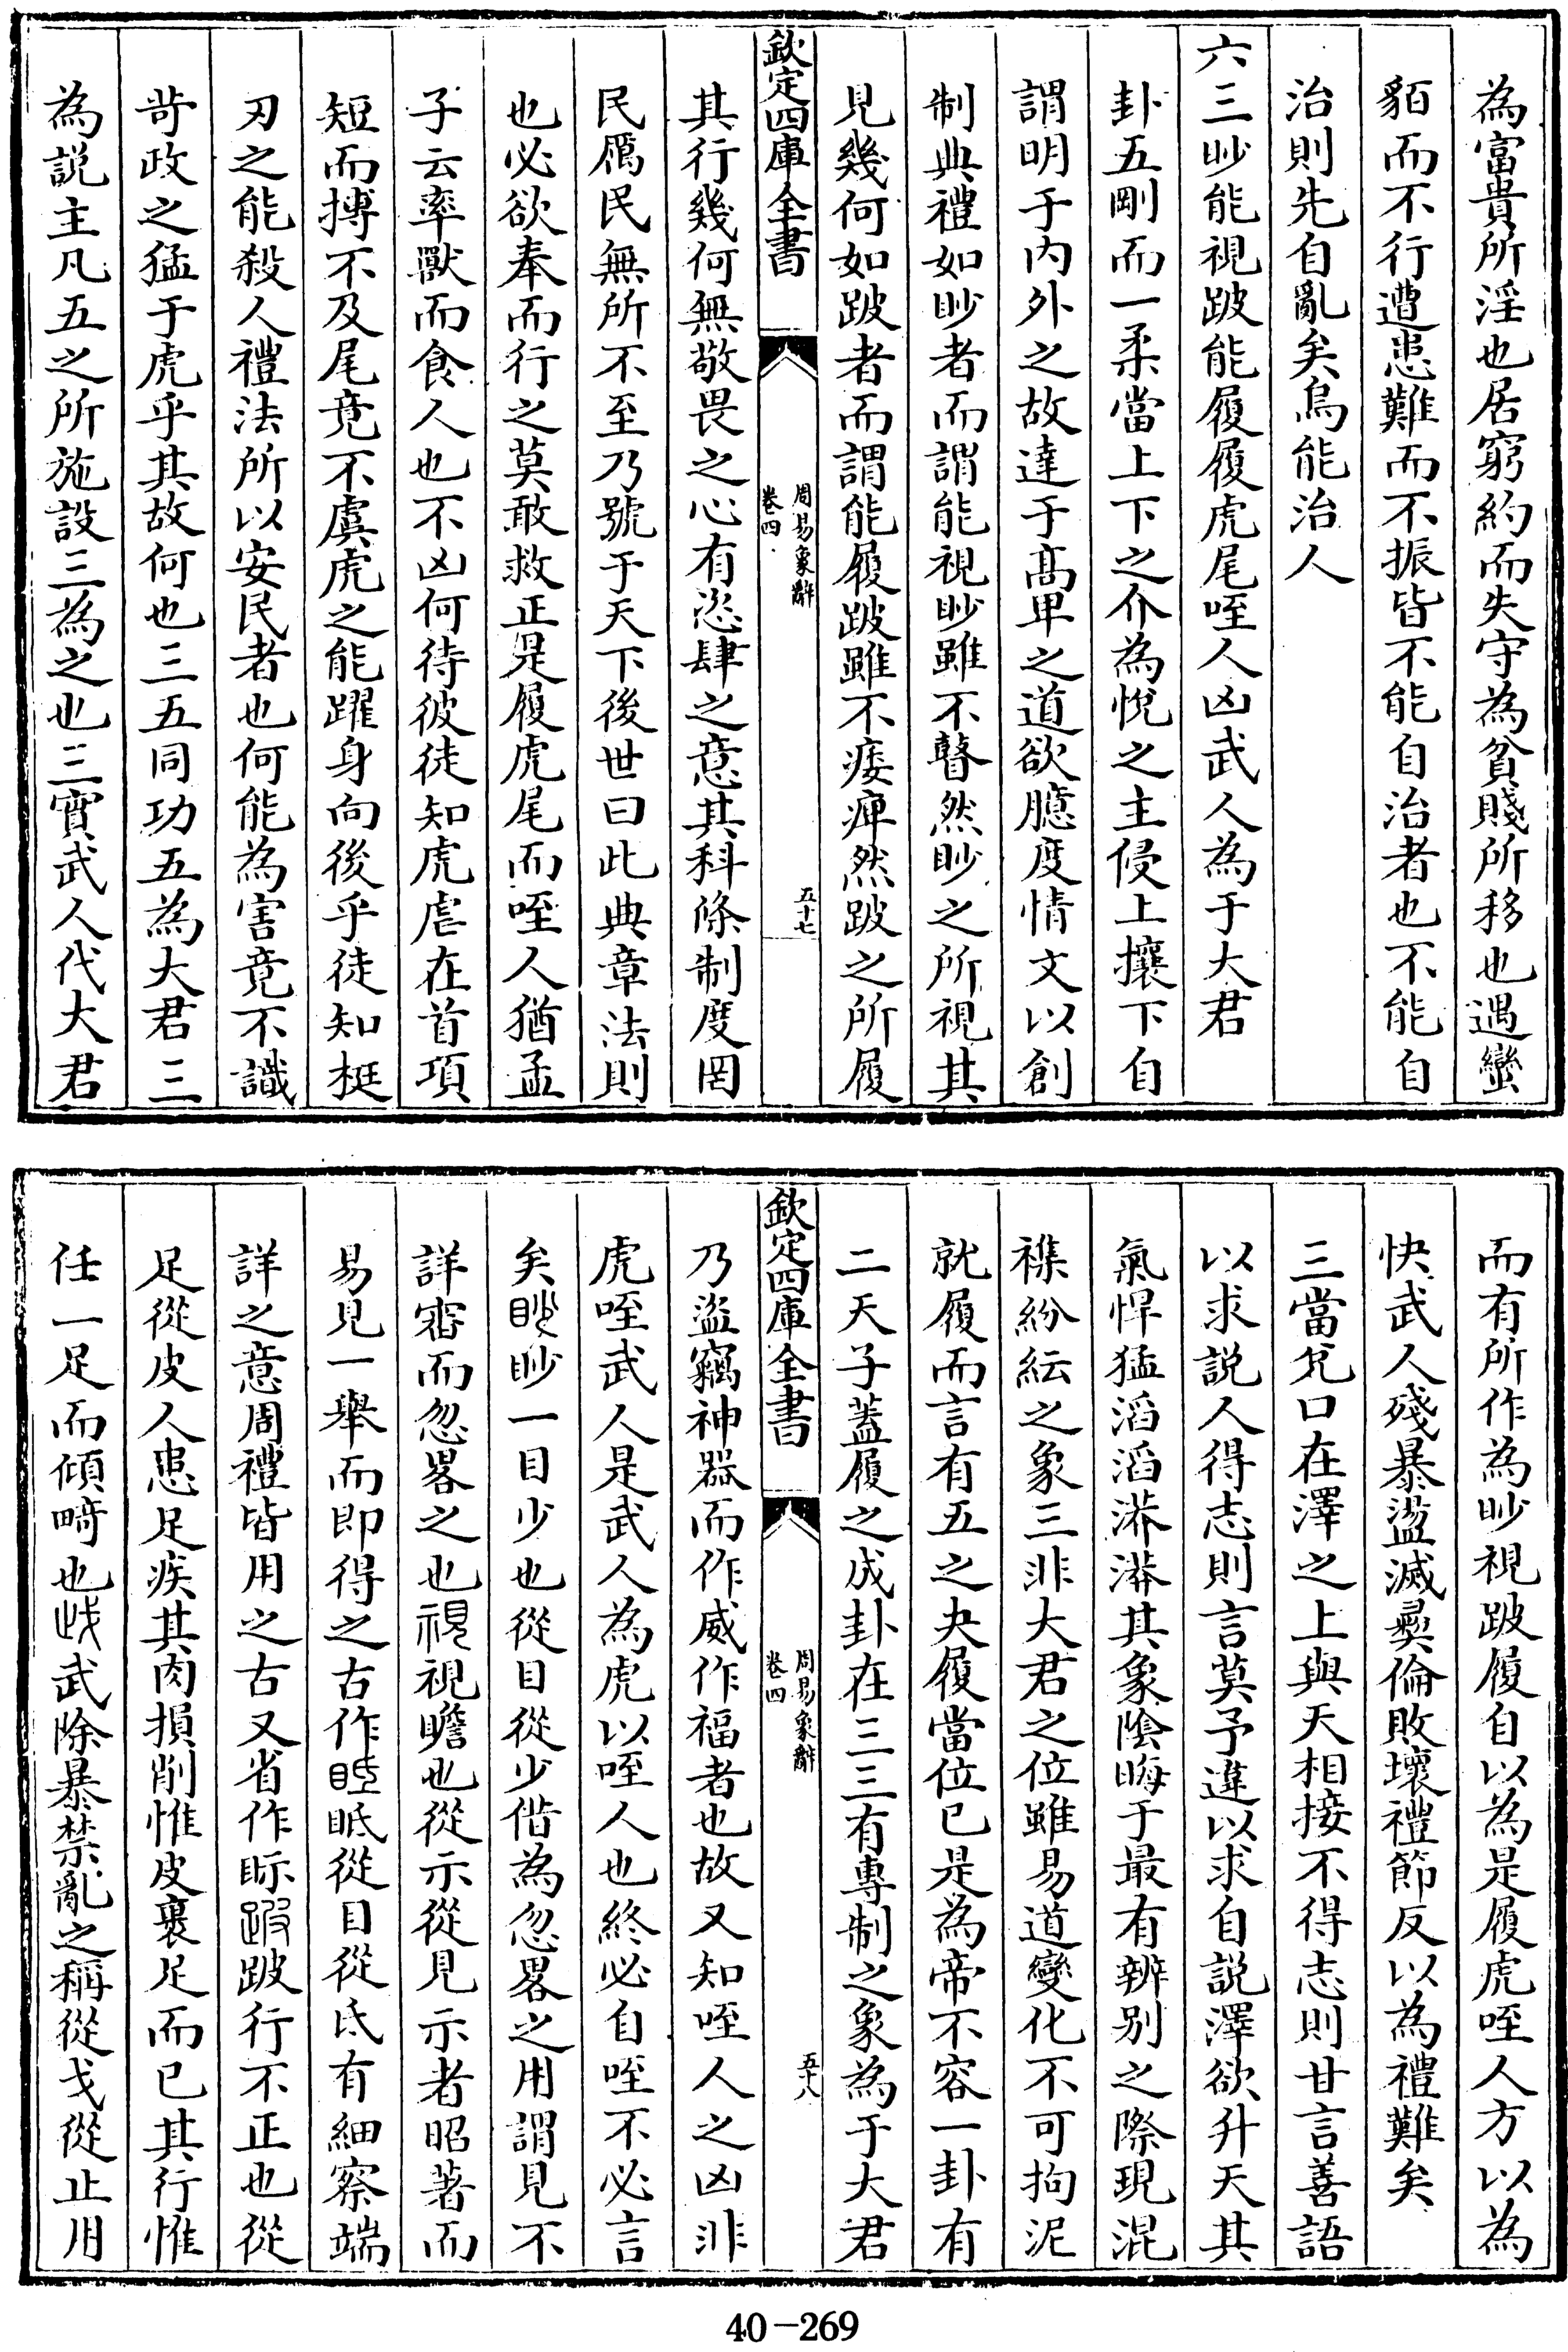 為富貴所淫也居窮約而失守為貧賤所移也遇蠻
貊而不行遭患難而不振皆不能自治者也不能自
治則先自亂矣烏能治人
六三眇能視跛能履履虎尾咥人凶武人為于大君
卦五剛而一柔當上下之介為悅之主侵上攘下自
謂明于内外之故達于髙卑之道欲臆度情文以創
制典禮如眇者而謂能視眇雖不瞽然眇之所視其
見幾何如跛者而謂能履跛雖不痿痺然跛之所履
欽定四庫全書
周易象辭
卷四
五十七
其行幾何無敬畏之心有恣肆之意其科條制度罔
民厲民無所不至乃號于天下後世曰此典章法則
也必欲奉而行之莫敢救正是履虎尾而咥人猶孟
子云率獸而食人也不凶何待彼徒知虎虐在首項
短而搏不及尾竟不虞虎之能躍身向後乎徒知梃
刃之能殺人禮法所以安民者也何能為害竟不識
苛政之猛于虎乎其故何也三五同功五為大君三
為説主凡五之所施設三為之也三實武人代大君
而有所作為眇視跛履自以為是履虎咥人方以為
快武人殘暴盪滅彛倫敗壞禮節反以為禮難矣
三當兊口在澤之上與天相接不得志則甘言善語
以求説人得志則言莫予違以求自説澤欲升天其
氣悍猛滔滔漭漭其象陰晦于最有辨别之際現混
襍紛紜之象三非大君之位雖易道變化不可拘泥
就履而言有五之夬履當位已是為帝不容一卦有
二天子蓋履之成卦在三三有專制之象為于大君
欽定四庫全書
周易象辭
卷四
五十八
乃盜竊神器而作威作福者也故又知咥人之凶非
虎咥武人是武人為虎以咥人也終必自咥不必言
矣眇眇一目少也從目從少偕為忽畧之用謂見不
詳宻而忽畧之也視視瞻也從示從見示者昭著而
易見一舉而即得之古作眡眡從目從氐有細察端
詳之意周禮皆用之古又省作眎跛跛行不正也從
足從皮人患足疾其肉損削惟皮裹足而已其行惟
任一足而傾畸也武武除暴禁亂之稱從戈從止用
40-269